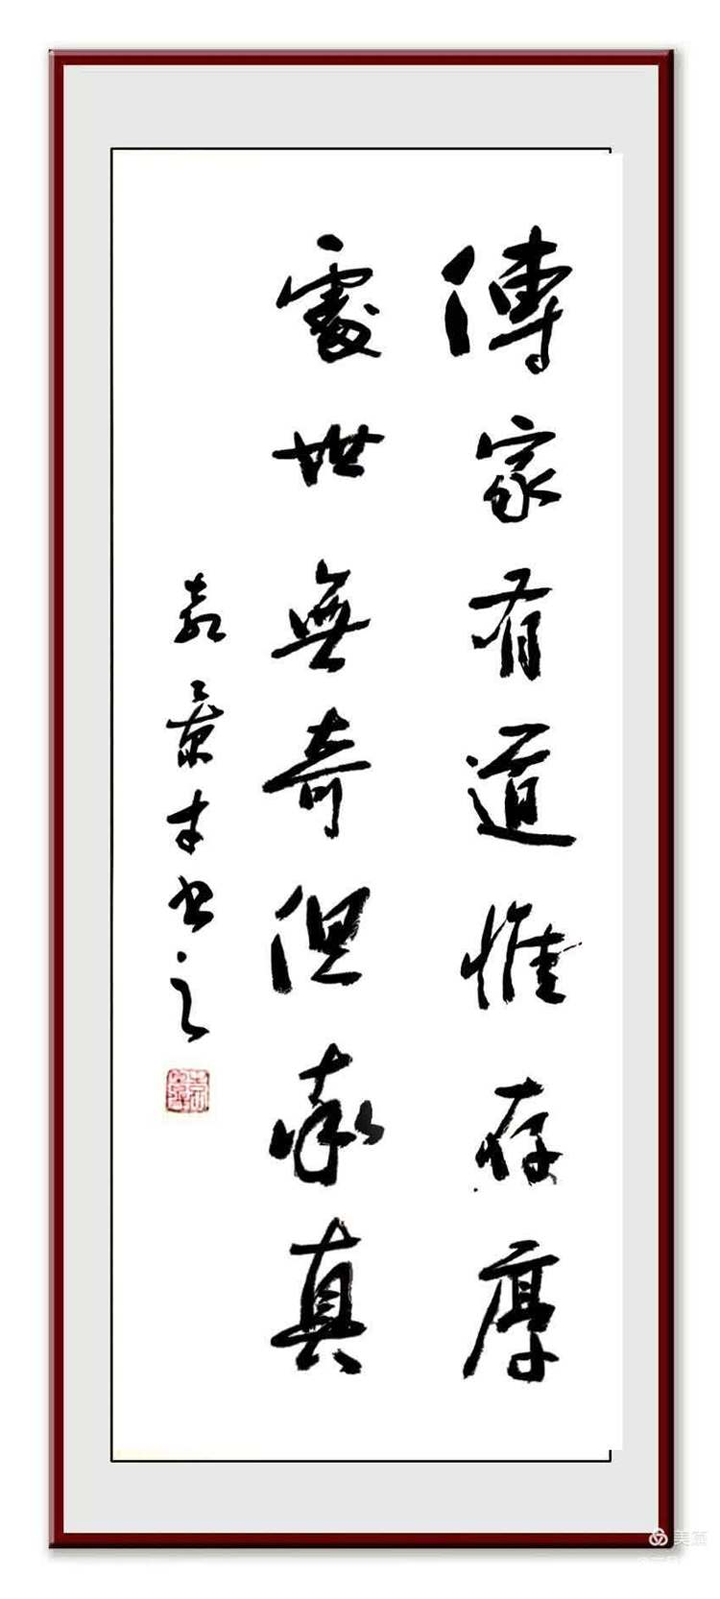 傳家有道惟存厚
處世無奇但率真
袁景才书之
美篇